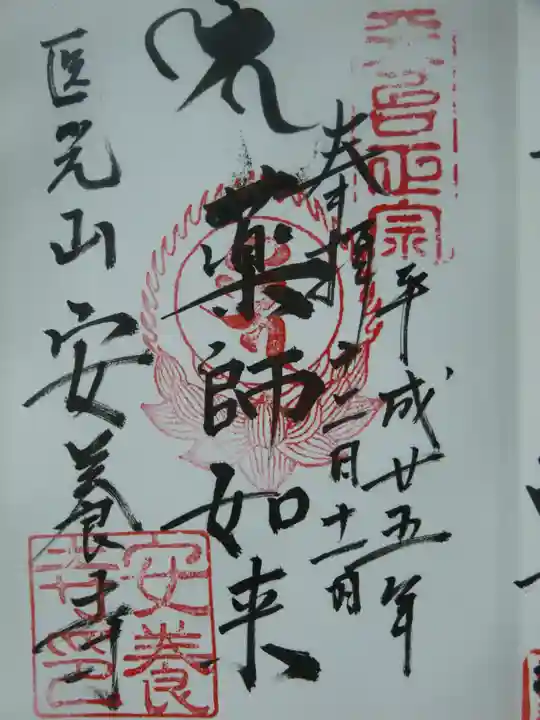 天台正宗
奉拝
平成廿五年
十二月十一日
薬師如来
医光山
安養寺
安養
寺印